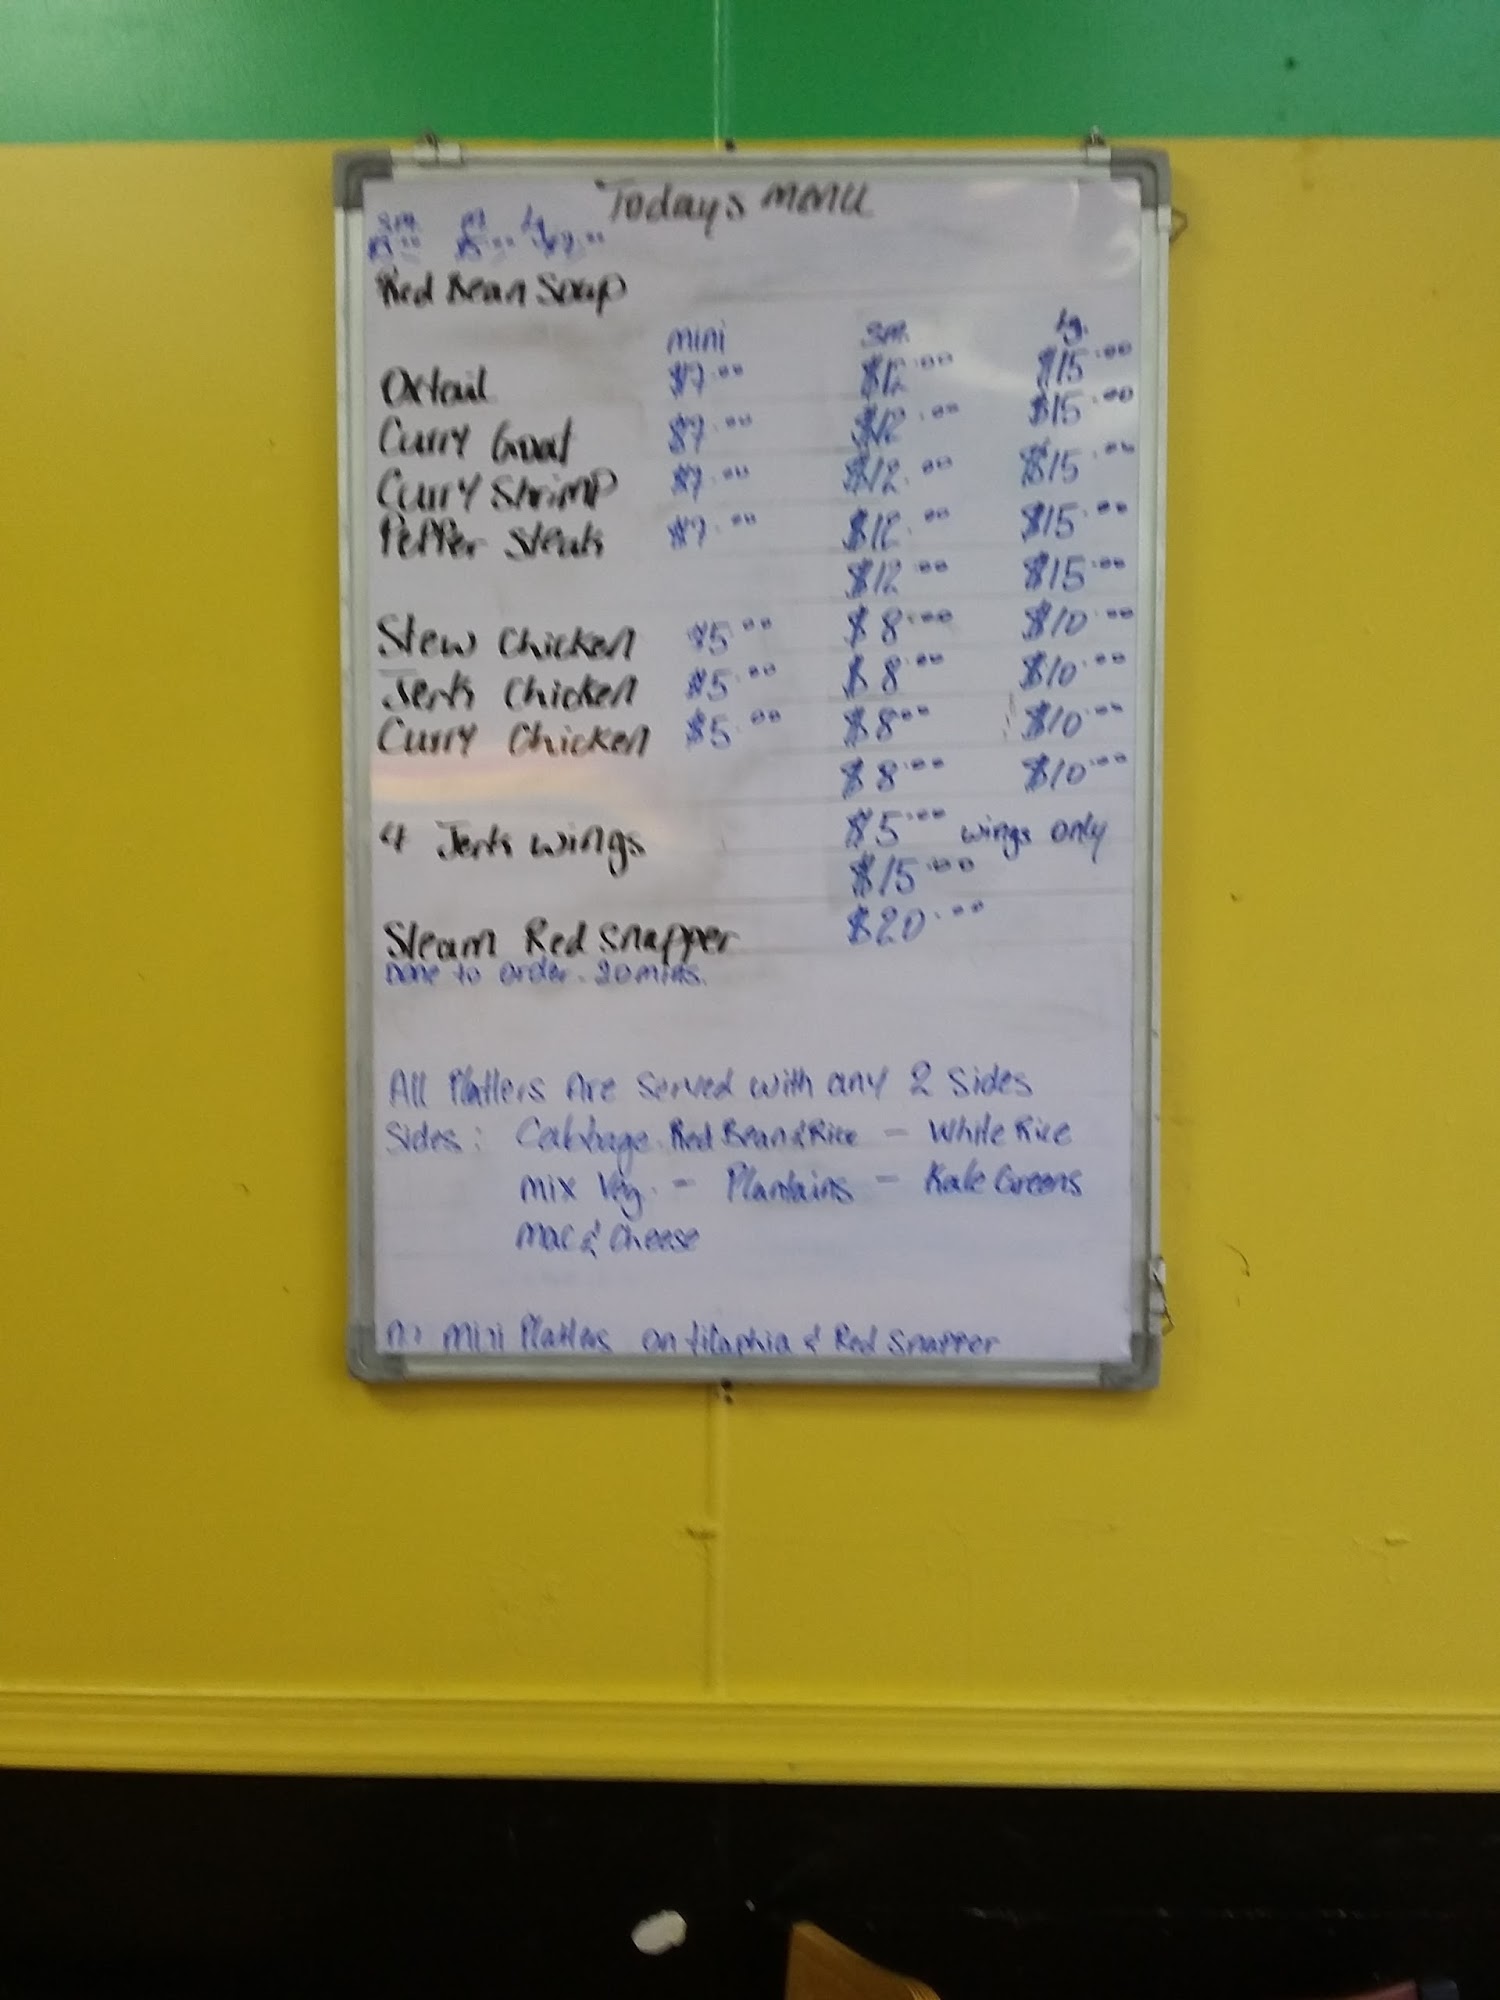 Todays menu
sm. lg
$5.00 $7.00
Red Bean Soup
mini sm. lg.
Oxtail $7.00 $12.00 $15.00
Curry Goat $7.00 $12.00 $15.00
Curry Shrimp $7.00 $12.00 $15.00
Pepper Steak $7.00 $12.00 $15.00
$12.00 $15.00
Stew Chicken $5.00 $8.00 $10.00
Jerk Chicken $5.00 $8.00 $10.00
Curry Chicken $5.00 $8.00 $10.00
$8.00 $10.00
4 Jerk wings $5.00 wings only
$15.00
Steam Red Snapper $20.00
Done to order. 20 mins.
All Platters Are Served with any 2 Sides
Sides: Cabbage. Red Bean & Rice - White Rice
mix Veg. - Plantains - Kale Greens
mac & Cheese
mini Platters on tilaphia & Red Snapper